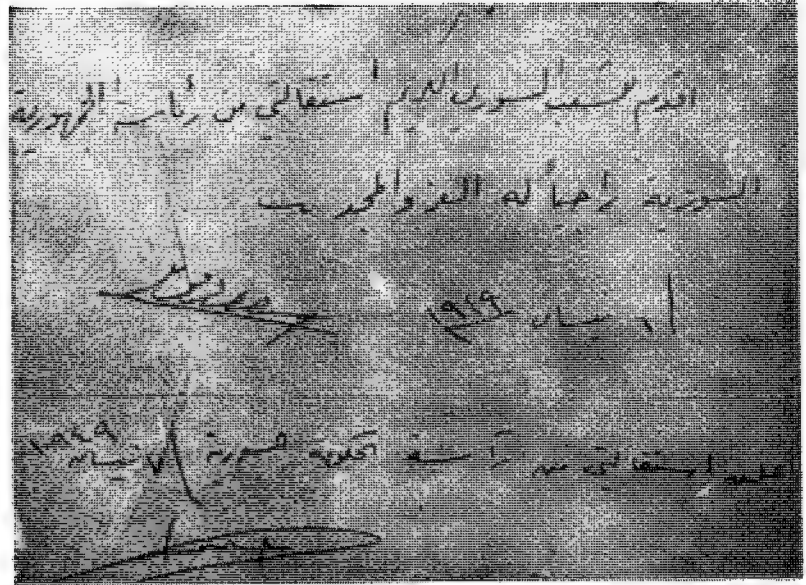 اقدم للشعب السوري الكريم استقالتي من رئاسة الجمهورية
السورية راجياً له العز والمجد
نيسان ١٩٤٩
استقالتي من رآسة الحكومة السورية ٧ نيسان ١٩٤٩